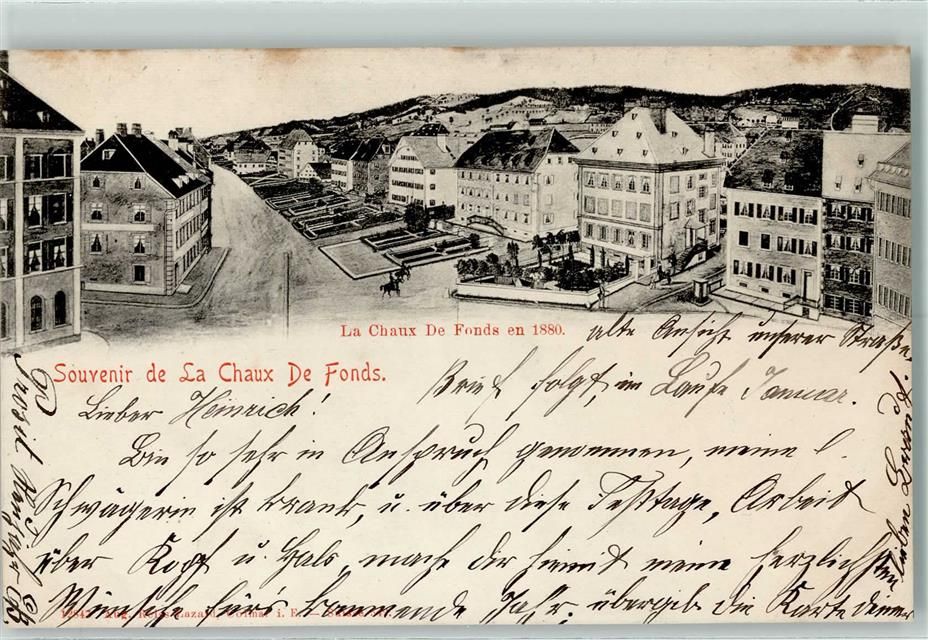 La Chaux De Fonds en 1880.
alte Ansicht unserer Straße.
Souvenir de La Chaux De Fonds.
Brief folgt im Laufe Januar.
Lieber Heinrich!
Bin so sehr in Anspruch genommen, meine l.
Schwägerin ist krank, u. über diese Festtage, Arbeit
über Kopf u. Hals, mache dir hiemit meine herzlichsten
Wünsche fürs kommende Jahr. übergib die Karte deiner
lieben